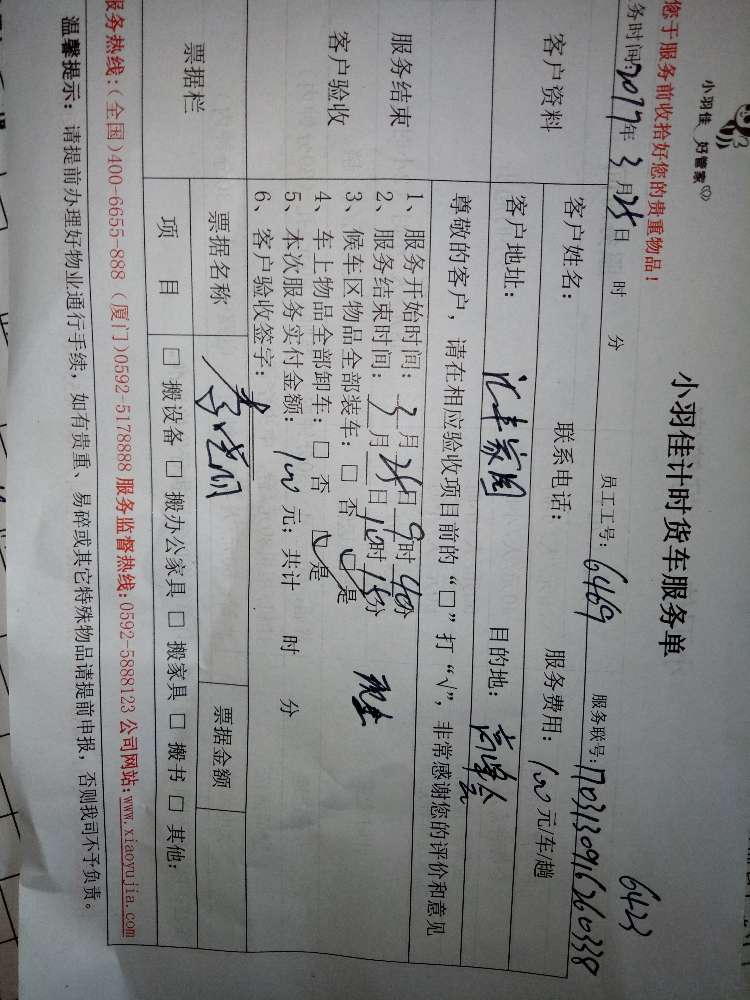 小羽佳 好管家
小羽佳计时货车服务单
6423
您于服务前收拾好您的贵重物品！
员工工号：6469 服务联号：1703130916260338
务时间：2017年3月25日 时 分
客户资料
客户姓名： 联系电话： 服务费用：100元/车/趟
客户地址：汇丰家园 目的地：
尊敬的客户，请在相应验收项目前的“□”打“√”，非常感谢您的评价和意见
服务结束
客户验收
1、服务开始时间：3月25日9时40分
2、服务结束时间： 月 日10时15分
3、候车区物品全部装车：□ 否 □√是
4、车上物品全部卸车：□ 否 □√是
5、本次服务实付金额：100元；共计 时 分
6、客户验收签字：
票据栏
票据名称 票据金额
项 目 □ 搬设备 □ 搬办公家具 □ 搬家具 □ 搬书 □ 其他：
服务热线：（全国）400-6655-888（厦门）0592-5178888 服务监督热线：0592-5888123 公司网站：www.xiaoyujia.com
温馨提示：请提前办理好物业通行手续，如有贵重、易碎或其它特殊物品请提前申报，否则我司不予负责。